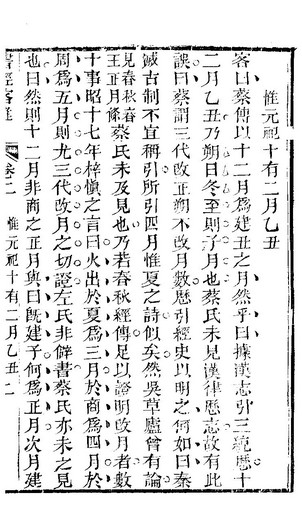 惟元祀十有二月乙丑
客曰蔡傳以十二月爲建丑之月然乎曰據漢志引三統歷十
二月乙丑乃朔旦冬至則子月也蔡氏未見漢律歷志故有此
誤曰蔡謂三代改正朔不改月數歷引經史以明之何如曰秦
滅古制不宜稱引所引四月惟夏之詩似矣然吳草廬曾有論
見春秋春王正月條蔡氏未及見也乃若春秋經傳足以證明改月者數
十事昭十七年梓慎之言曰火出於夏爲三月於商爲四月於
周爲五月則尤三代改月之切證左氏非僻書蔡氏亦未之見
也曰然則十二月非商之正月與曰旣建子何爲正月次月建
卷二
惟元祀十有二月乙丑
二